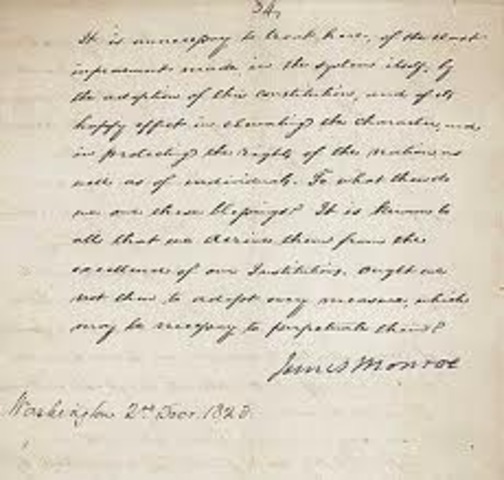 34,
It is unnecessary to treat, here, of the vast
improvement made in the system itself, by
the adoption of this Constitution, and of its
happy effect in elevating the character, and
in protecting the rights of the nation, as
well as of individuals. To what then do
we owe these blessings? It is known to
all that we derive them from the
excellence of our Institutions. Ought we
not then to adopt every measure, which
may be necessary to perpetuate them?
James Monroe
Washington 2nd Decr. 1823.